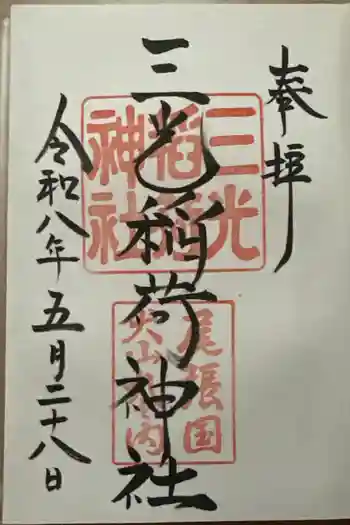 奉拝
三光稲荷神社
三光
稲荷
神社
尾張国
犬山城内
令和八年五月二十八日